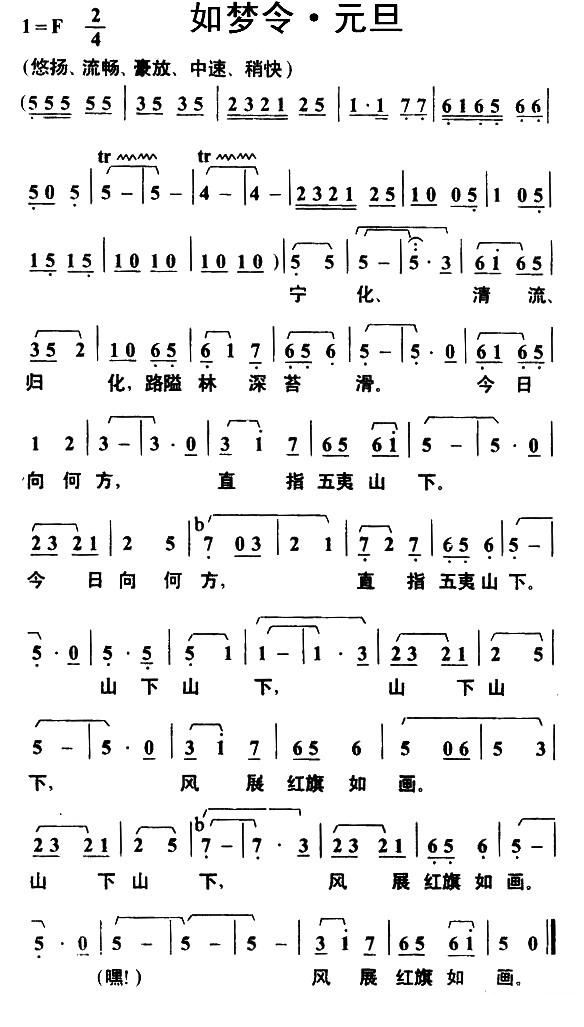 如梦令·元旦
1=F 2/4
(悠扬、流畅、豪放、中速、稍快)
(5 5 5 5 5 | 3 5 3 5 | 2 3 2 1 2 5 | 1 · 1 7 7 | 6 1 6 5 6 6 |
tr tr
5 0 5 | 5 – | 5 – | 4 – | 4 – | 2 3 2 1 2 5 | 1 0 0 5 | 1 0 5 |
1 5 1 5 | 1 0 1 0 | 1 0 1 0 ) | 5 5 | 5 – | 5 · 3 | 6 1 6 5 |
宁 化、 清 流、
3 5 2 | 1 0 6 5 | 6 1 7 | 6 5 6 | 5 – | 5 · 0 | 6 1 6 5 |
归 化,路隘 林 深 苔 滑。 今 日
1 2 | 3 – | 3 · 0 | 3 1 7 | 6 5 6 1 | 5 – | 5 · 0 |
向 何 方, 直 指 五夷 山 下。
2 3 2 1 | 2 5 | b7 0 3 | 2 1 | 7 2 7 | 6 5 6 | 5 – |
今 日 向 何 方, 直 指 五夷 山 下。
5 · 0 | 5 · 5 | 5 1 | 1 – | 1 · 3 | 2 3 2 1 | 2 5 |
山 下 山 下, 山 下 山
5 – | 5 · 0 | 3 1 7 | 6 5 6 | 5 0 6 | 5 3 |
下, 风 展 红旗 如 画。
2 3 2 1 | 2 5 | b7 – | 7 · 3 | 2 3 2 1 | 6 5 6 | 5 – |
山 下 山 下, 风 展 红旗 如 画。
5 · 0 | 5 – | 5 – | 5 – | 3 1 7 | 6 5 6 1 | 5 0 ‖
(嘿!) 风 展 红旗 如 画。